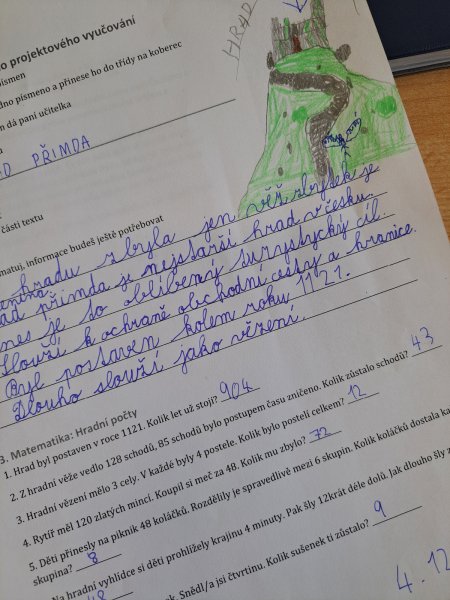 HRAD
o projektového vyučování
písmen
dno písmeno a přinese ho do třídy na koberec
m dá paní učitelka
PŘIMDA
části textu
matuj, informace budeš ještě potřebovat
hradu zbyla jen věž zbytek je
přimda je nejstarší hrad v česku.
nes je to oblíbený turystycký cíl.
Slouží k ochraně obchodní cesty a hranice.
Byl postaven kolem roku 1121.
Dlouho slouží jako vězení.
3. Matematika: Hradní počty
1. Hrad byl postaven v roce 1121. Kolik let už stojí? 904
2. Z hradní věže vedlo 128 schodů, 85 schodů bylo postupem času zničeno. Kolik zůstalo schodů? 43
3. Hradní vězení mělo 3 cely. V každé byly 4 postele. Kolik bylo postelí celkem? 12
4. Rytíř měl 120 zlatých mincí. Koupil si meč za 48. Kolik mu zbylo? 72
5. Děti přinesly na piknik 48 koláčků. Rozdělily je spravedlivě mezi 6 skupin. Kolik koláčků dostala
skupina? 8
Na hradní vyhlídce si děti prohlížely krajinu 4 minuty. Pak šly 12krát déle dolů. Jak dlouho šly
48
Snědl/a jsi čtvrtinu. Kolik sušenek ti zůstalo? 9
4.12